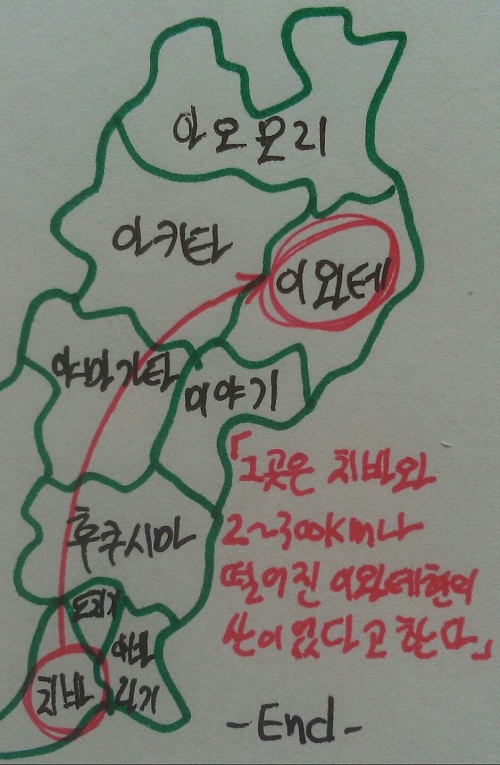 아오모리
아키타
이와테
야마가타
미야기
후쿠시마
도치기
이바
라기
치바
「그곳은 치바와
2~300km나
떨어진 이와테현의
산이었다고 한다」
-End-